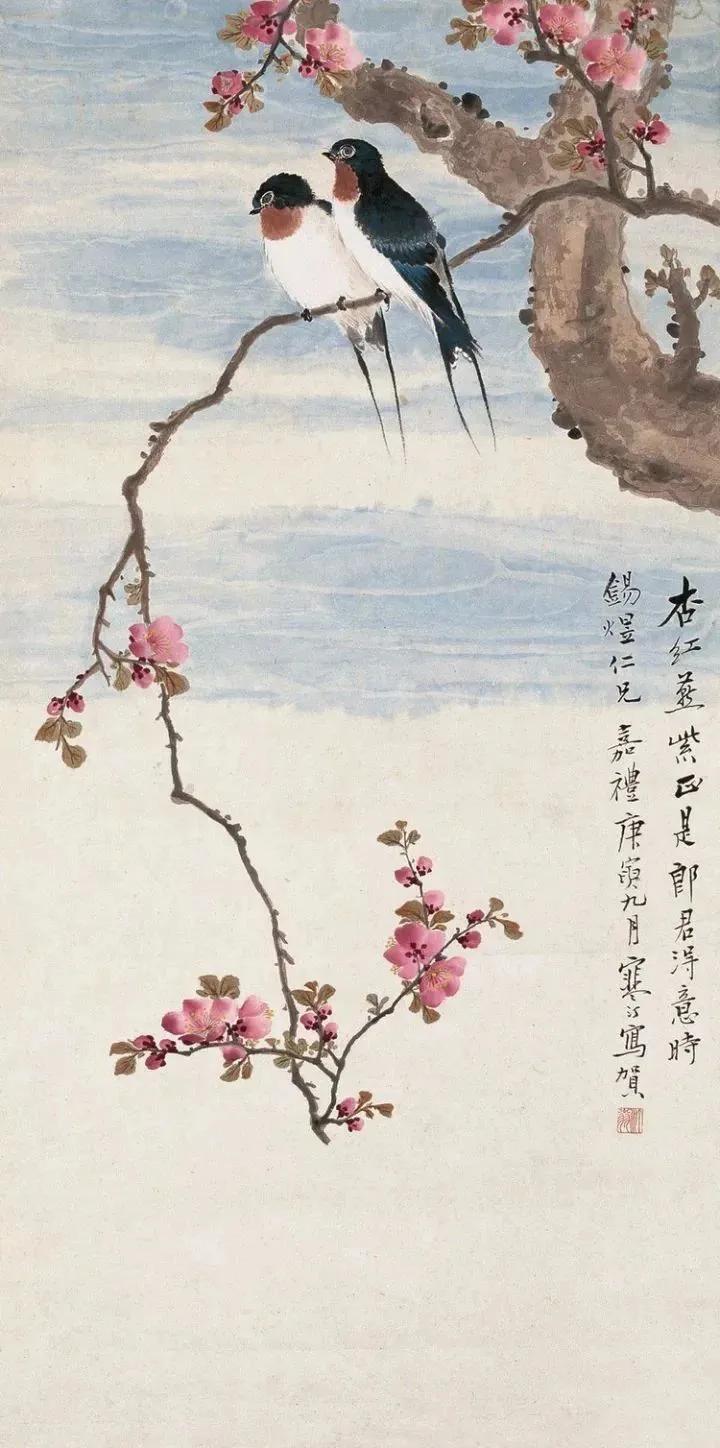 杏红燕紫正是郎君得意時
錫煜仁兄嘉禮庚寅九月寒汀寫賀